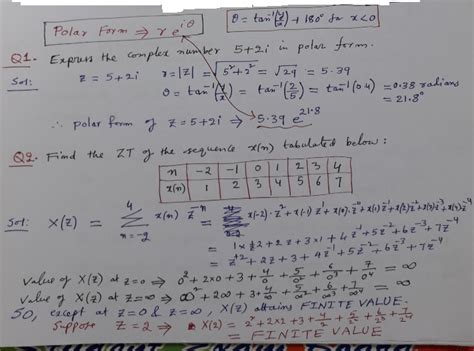 Polar Form ⇒ r e^{iθ}
θ = tan⁻¹(y/x) + 180° for x<0
Q1. Express the complex number 5+2i in polar form.
Sol: z = 5+2i r = |z| = √(5²+2²) = √29 = 5.39
θ = tan⁻¹(y/x) = tan⁻¹(2/5) = tan⁻¹(0.4) = 0.38 radians
= 21.8°
∴ polar form of z = 5+2i ⇒ 5.39 e^{21.8}
Q2. Find the ZT of the sequence x(n) tabulated below:
n -2 -1 0 1 2 3 4
x(n) 1 2 3 4 5 6 7
Sol: X(z) = Σ_{n=-2}^{4} x(n) z^{-n} = x(-2)·z² + x(-1) z¹ + x(0)·z⁰ + x(1) z⁻¹ + x(2) z⁻² + x(3) z⁻³ + x(4) z⁻⁴
= 1×z² + 2z + 3×1 + 4z⁻¹ + 5z⁻² + 6z⁻³ + 7z⁻⁴
= z² + 2z + 3 + 4z⁻¹ + 5z⁻² + 6z⁻³ + 7z⁻⁴
Value of X(z) at z=0 ⇒ 0² + 2×0 + 3 + 4/0 + 5/0² + 6/0³ + 7/0⁴ = ∞
Value of X(z) at z=∞ ⇒ ∞² + 2∞ + 3 + 4/∞ + 5/∞² + 6/∞³ + 7/∞⁴ = ∞
SO, except at z=0 & z=∞, X(z) attains FINITE VALUE.
Suppose z = 2 ⇒ X(2) = 2² + 2×2 + 3 + 4/2 + 5/2² + 6/2³ + 7/2⁴
= FINITE VALUE